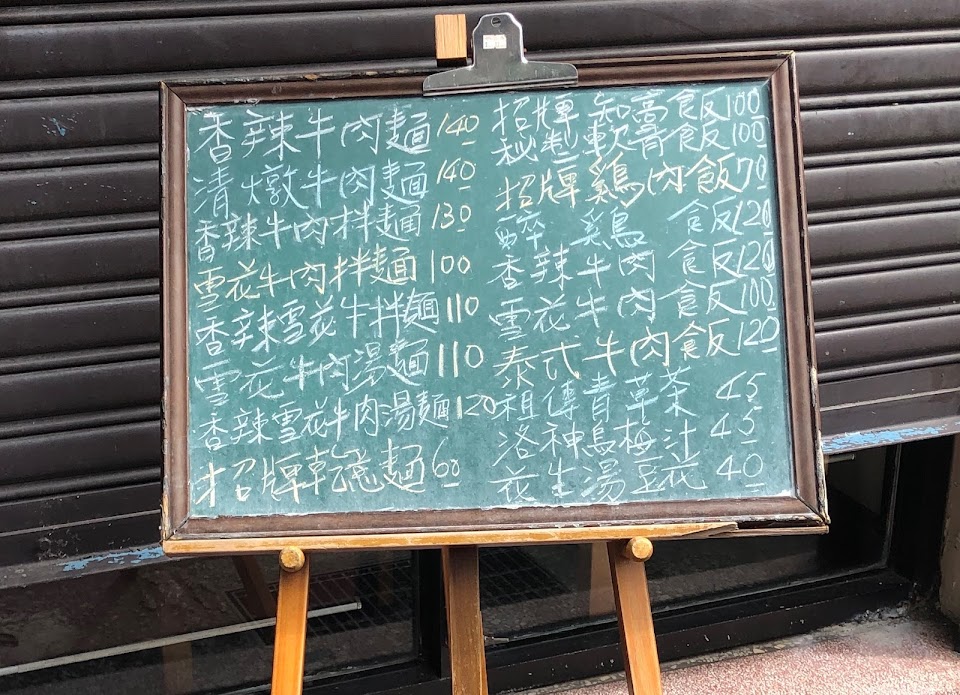 香辣牛肉麵 140
清燉牛肉麵 140
香辣牛肉拌麵 130
雪花牛肉拌麵 100
香辣雪花牛拌麵 110
雪花牛肉湯麵 110
香辣雪花牛肉湯麵 120
招牌乾麵 60
招牌 飯 100
秘製軟骨飯 100
招牌雞肉飯 70
醉雞飯 120
香辣牛肉飯 120
雪花牛肉飯 100
泰式牛肉飯 120
祖傳青草茶 45
洛神烏梅汁 45
花生湯豆花 40